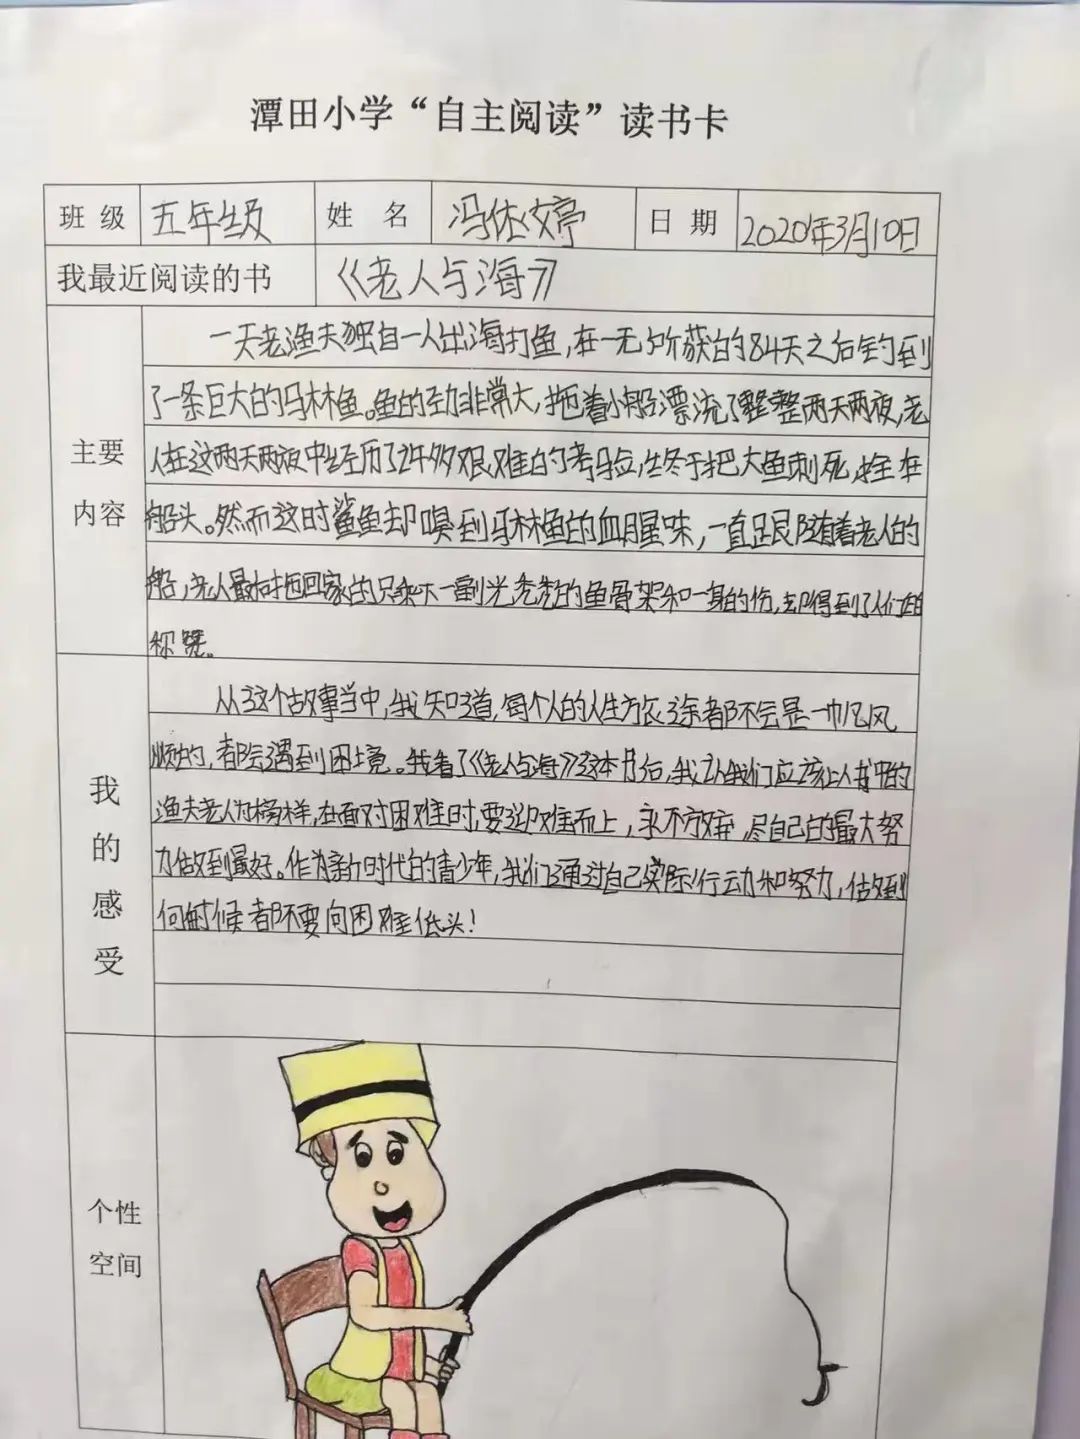 潭田小学“自主阅读”读书卡
班级 五年级 姓名 冯依婷 日期 2020年3月10日
我最近阅读的书 《老人与海》
主要内容
一天老渔夫独自一人出海打鱼,在一无所获的84天之后钓到
了一条巨大的马林鱼。鱼的劲非常大,拖着小船漂流了整整两天两夜,老
人在这两天两夜中经历了许多艰难的考验,终于把大鱼刺死,拴在
船头。然而这时鲨鱼却嗅到马林鱼的血腥味,一直跟随着老人的
船,老人最后拖回家的只剩下一副光秃秃的鱼骨架和一身的伤,却得到了人们的
称赞。
我的感受
从这个故事当中,我知道,每个人的人生旅途都不会是一帆风
顺的,都会遇到困境。我看了《老人与海》这本书后,我认我们应该以书中的
渔夫老人为榜样,在面对困难时,要迎难而上,永不放弃,尽自己的最大努
力做到最好。作为新时代的青少年,我们通过自己实际行动和努力,做到
何时候都不要向困难低头!
个性空间